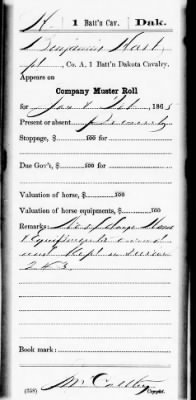 K | 1 Batt'n Cav. | Dak.
Benjamin
pt, Co. A, 1 Batt'n Dakota Cavalry.
Appears on
Company Muster Roll
for Jan & Feb, 1865
Present or absent Present
Stoppage, $ 100 for
Due Gov't, $ 100 for
Valuation of horse, $ 100
Valuation of horse equipments, $ 100
Remarks: Horse
& Equipments owned
and kept in service
Book mark:
(358) Copyist.